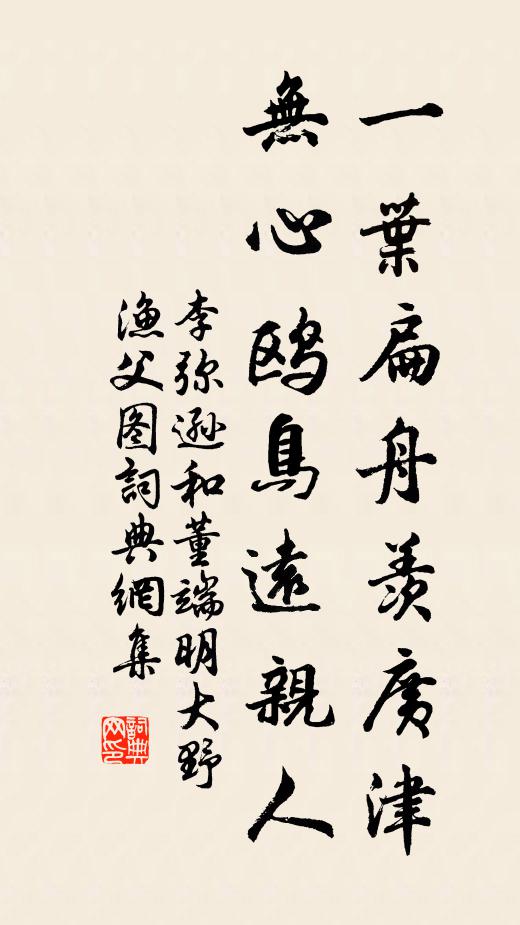 一葉扁舟羨廣津
無心鷗鳥遠親人
李弥遜和董端明大野
漁父图詞典網集
詞典網印